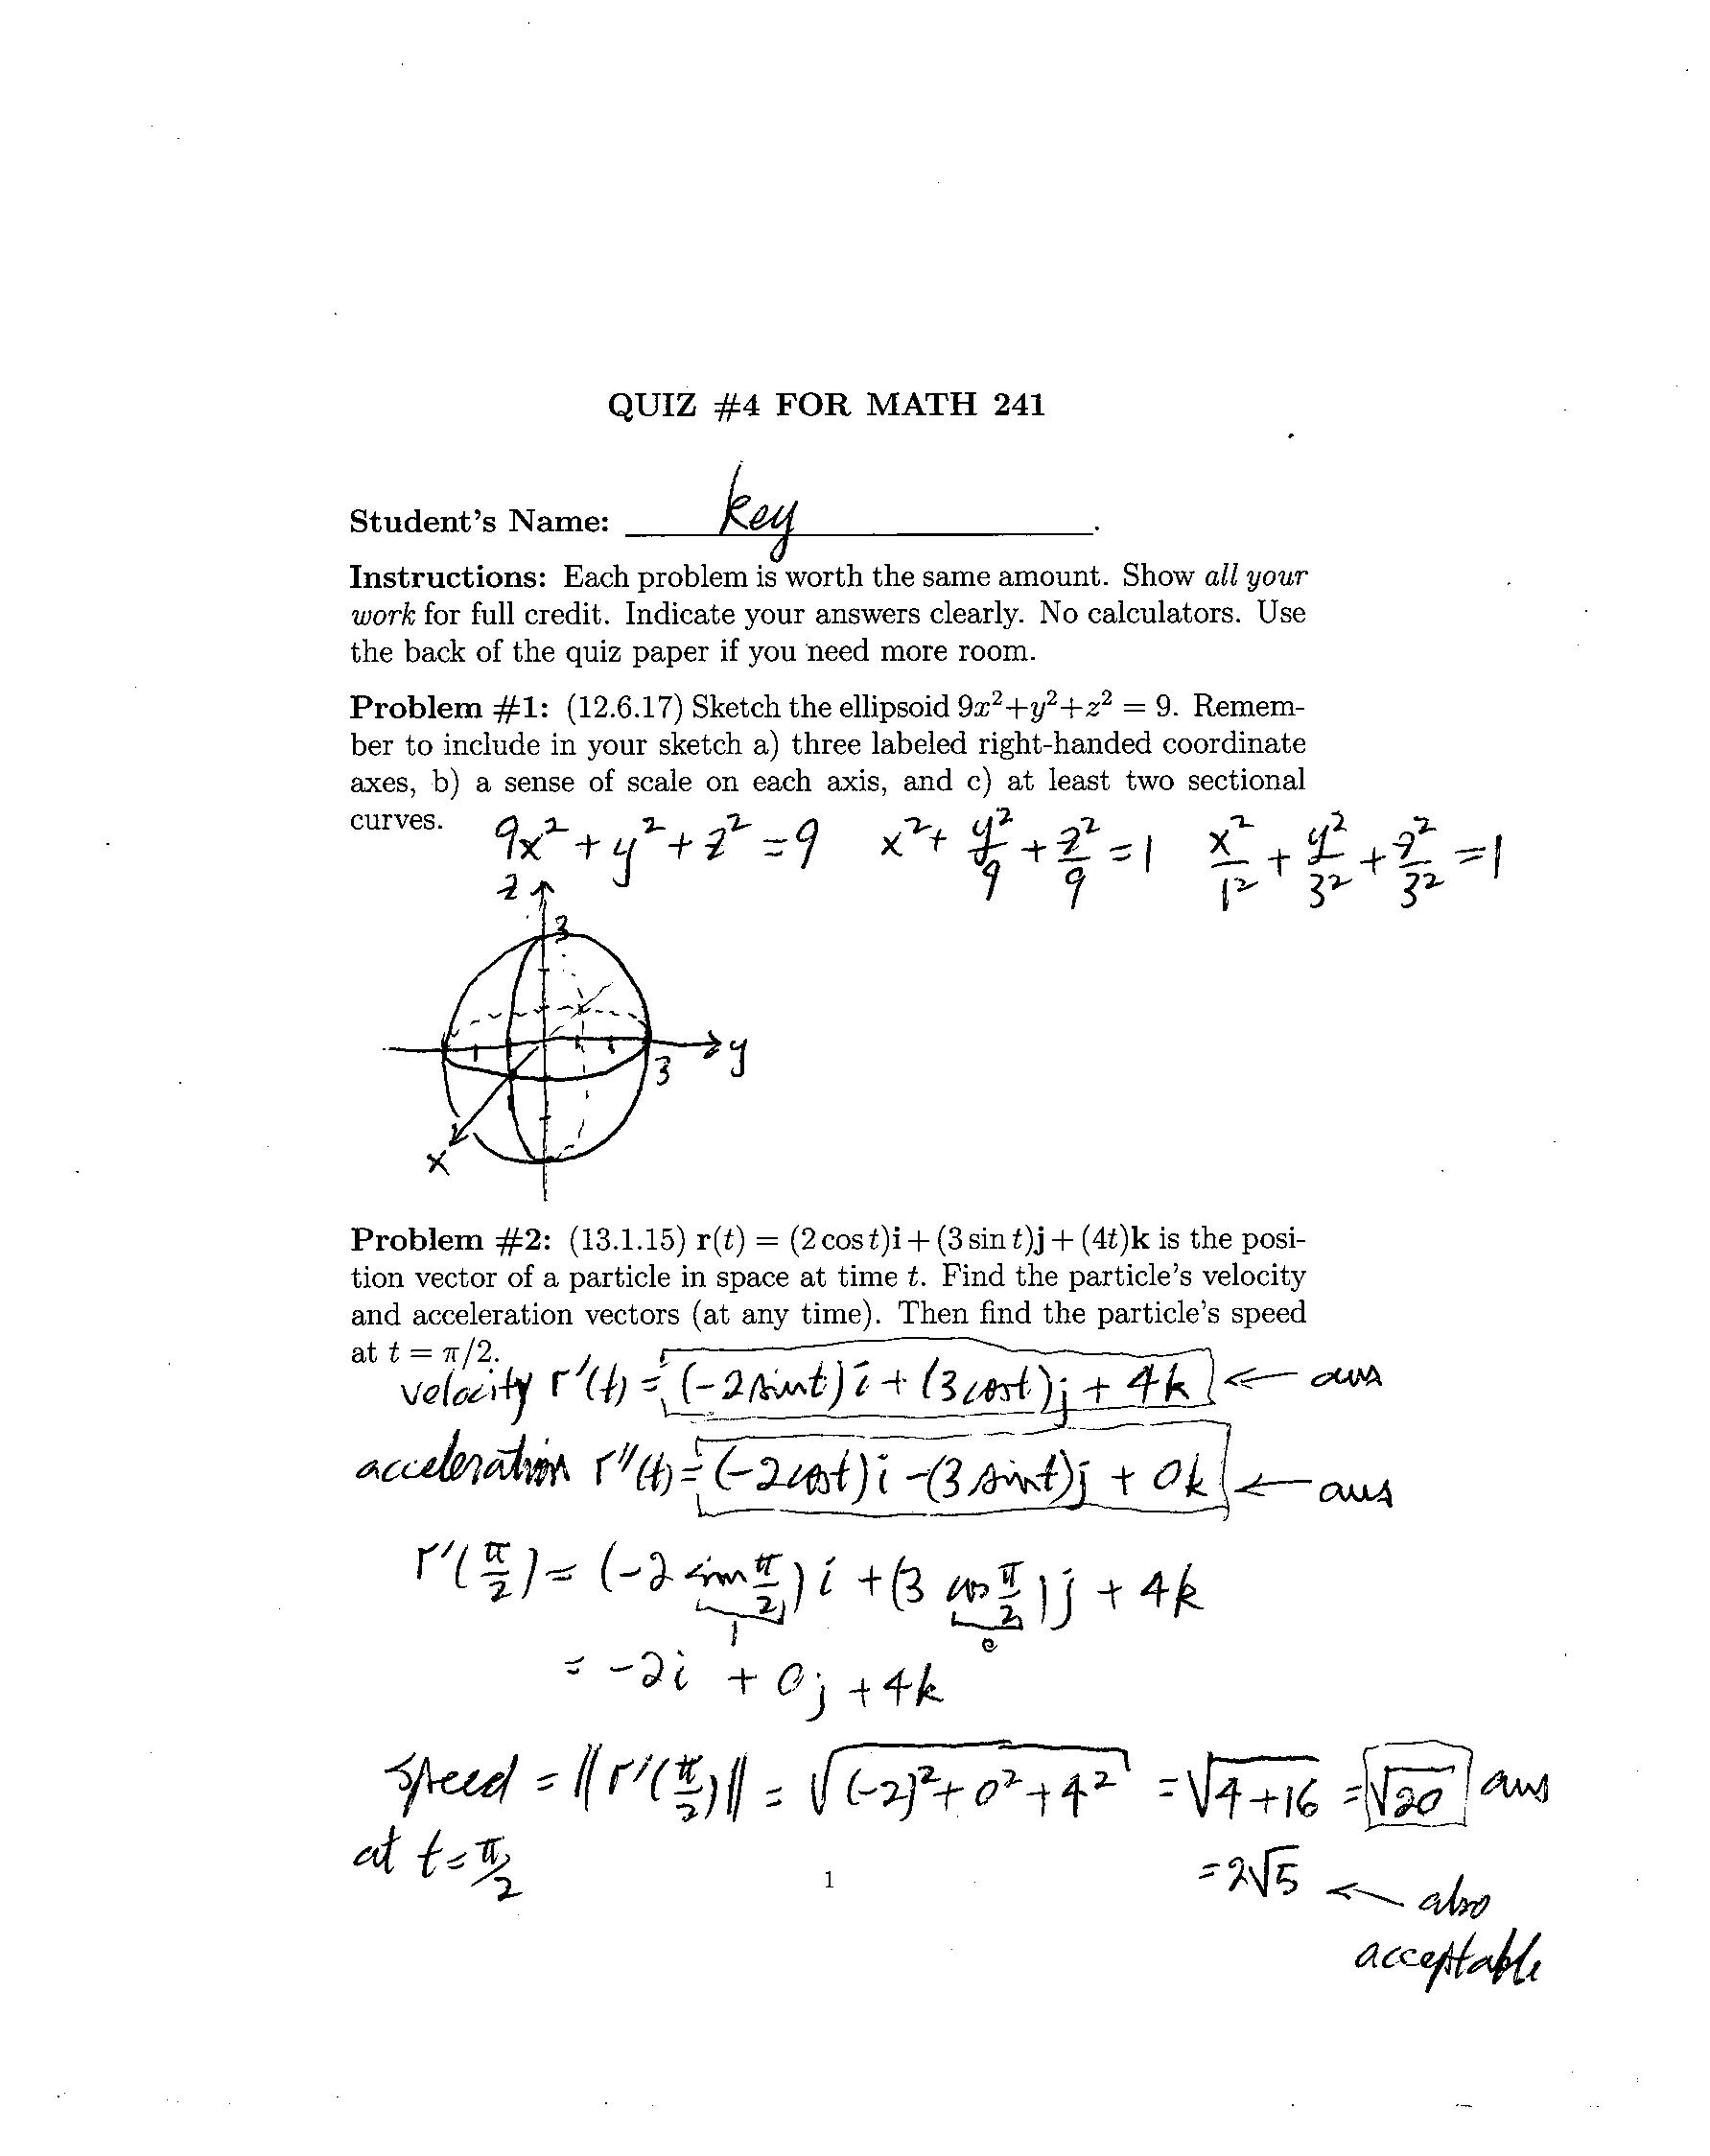 QUIZ #4 FOR MATH 241
Student's Name: key .
Instructions: Each problem is worth the same amount. Show all your
work for full credit. Indicate your answers clearly. No calculators. Use
the back of the quiz paper if you need more room.
Problem #1: (12.6.17) Sketch the ellipsoid 9x²+y²+z² = 9. Remem-
ber to include in your sketch a) three labeled right-handed coordinate
axes, b) a sense of scale on each axis, and c) at least two sectional
curves.
9x² + y² + z² = 9   x² + y²/9 + z²/9 = 1   x²/1² + y²/3² + z²/3² = 1
z
3
3 y
x
Problem #2: (13.1.15) r(t) = (2 cos t)i + (3 sin t)j + (4t)k is the posi-
tion vector of a particle in space at time t. Find the particle's velocity
and acceleration vectors (at any time). Then find the particle's speed
at t = π/2.
velocity r'(t) = (-2 sin t) i + (3 cos t) j + 4k ← ans
acceleration r''(t) = (-2 cos t) i - (3 sin t) j + 0k ← ans
r'(π/2) = (-2 sin π/2) i + (3 cos π/2) j + 4k
1 0
= -2i + 0j + 4k
speed = ||r'(π/2)|| = √((-2)² + 0² + 4²) = √(4+16) = √20 ans
at t = π/2
= 2√5 ← also
acceptable
1